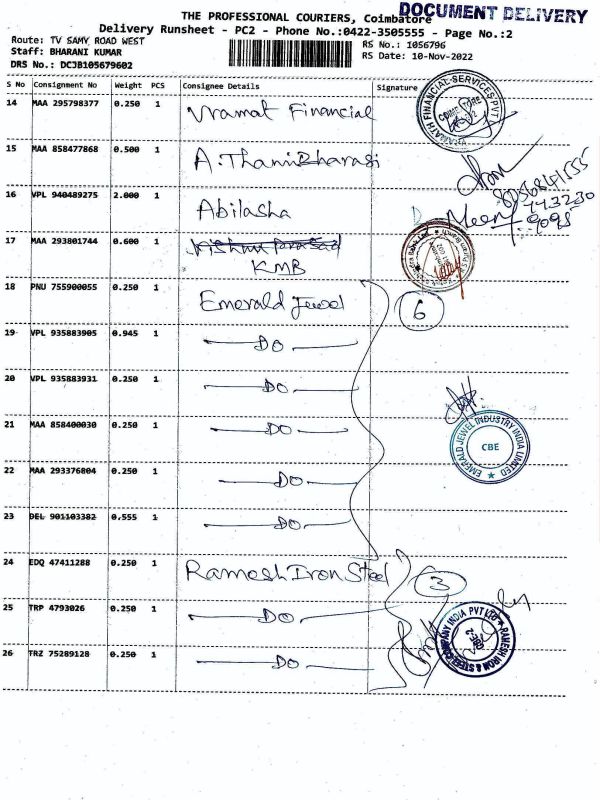 DOCUMENT DELIVERY
THE PROFESSIONAL COURIERS, Coimbatore
Delivery Runsheet - PC2 - Phone No.:0422-3505555 - Page No.:2
Route: TV SAMY ROAD WEST
Staff: BHARANI KUMAR
DRS No.: DCJB105679602
RS No.: 1056796
RS Date: 10-Nov-2022
S No Consignment No Weight PCS Consignee Details Signature
14 MAA 295798377 0.250 1 Vramat Financial
FINANCIAL SERVICES PVT
15 MAA 858477868 0.500 1 A. Thanibharasi
8056841555
16 VPL 940489275 2.000 1 Abilasha
Meena
17 MAA 293801744 0.600 1 Vishnu Prasad
KMB
18 PNU 755900055 0.250 1 Emerald Jewel 6
19 VPL 935883905 0.945 1 DO
20 VPL 935883931 0.250 1 DO
21 MAA 858400030 0.250 1 DO
EMERALD JEWEL INDUSTRY INDIA LIMITED
CBE
22 MAA 293376804 0.250 1 DO
23 DEL 901103382 0.555 1 DO
24 EDQ 47411288 0.250 1 Ramesh Iron Steel 3
25 TRP 4793026 0.250 1 DO
RAMESH IRON & STEEL COMPANY INDIA PVT LTD
26 TRZ 75289128 0.250 1 DO